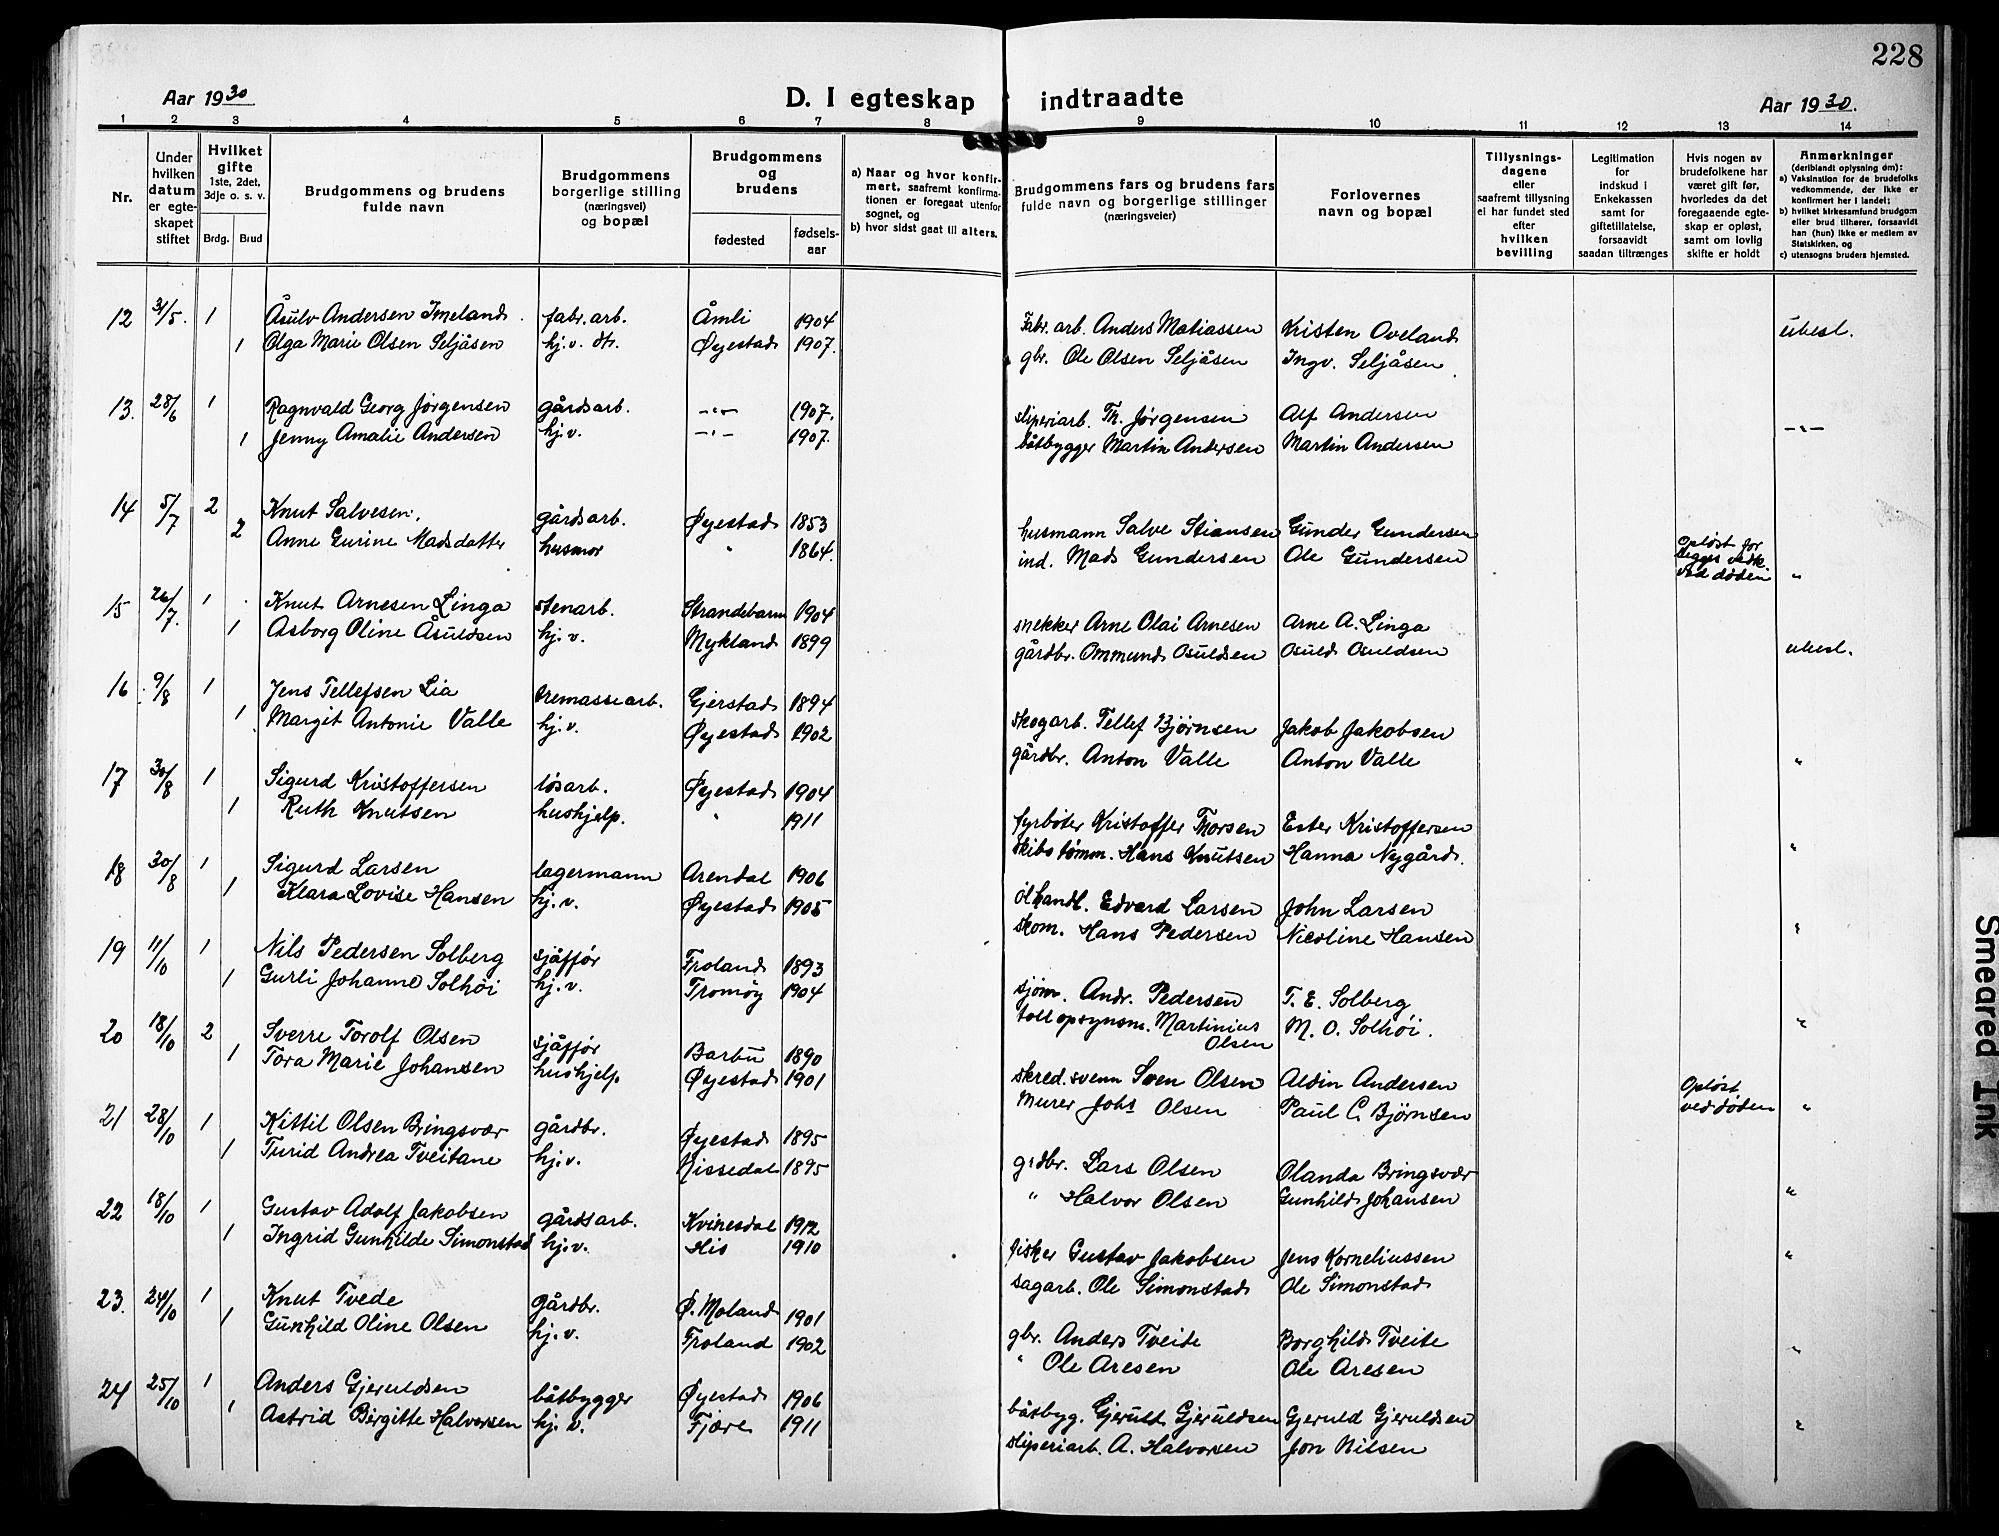 228
Aar 1930
D. I egteskap indtraadte
Aar 1930.
1 2 3 4 5 6 7 8 9 10 11 12 13 14
Nr.
Under hvilken datum er egteskapet stiftet
Hvilket gifte 1ste, 2det, 3dje o. s. v.
Brdg. Brud
Brudgommens og brudens fulde navn
Brudgommens borgerlige stilling (næringsvei) og bopæl
Brudgommens og brudens
fødested
fødsels-aar
a) Naar og hvor konfirmert, saafremt konfirmationen er foregaat utenfor sognet, og
b) hvor sidst gaat til alters.
Brudgommens fars og brudens fars fulde navn og borgerlige stillinger (næringsveier)
Forlovernes navn og bopæl
Tillysnings-dagene eller saafremt tillysning ei har fundet sted efter hvilken bevilling
Legitimation for indskud i Enkekassen samt for giftetillatelse, forsaavidt saadan tiltrænges
Hvis nogen av brudefolkene har været gift før, hvorledes da det foregaaende egteskap er opløst, samt om lovlig skifte er holdt
Anmerkninger (deriblandt oplysning om):
a) Vaksination for de brudefolks vedkommende, der ikke er konfirmert her i landet;
b) hvilket kirkesamfund brudgom eller brud tilhører, forsaavidt han (hun) ikke er medlem av Statskirken, og
c) utensogns bruders hjemsted.
12 31/5. 1 Åsulv Andersen Imeland fabr. arb. Åmli 1904 Fabr. arb. Anders Matiassen Kristen Oveland ubesl.
1 Olga Marie Olsen Seljåsen hj. v. dtr. Øyestad 1907. gbr. Ole Olsen Seljåsen Ingv. Seljåsen
13. 28/6 1 Ragnvald Georg Jørgensen gårdsarb. -"- 1907. sliperiarb. Th. Jørgensen Alf Andersen -"-
1 Jenny Amalie Andersen hj.v. -"- 1907. båtbygger Martin Andersen Martin Andersen
14 5/7 2 Knut Salvesen, gårdsarb. Øyestad 1853 husmann Salve Stiansen Gunder Gundersen
2 Anne Gurine Madsdatter husmor " 1864. ind. Mads Gundersen Ole Gundersen Opløst for begges vedk. ved døden "
15 26/7. 1 Knut Arnesen Linga stenarb. Strandebarm 1904 snekker Arne Olai Arnesen Arne A. Linga
1 Asborg Oline Åsuldsen hj. v. Mykland 1899 gårdbr. Ommund Osuldsen Osuld Osuldsen ubesl.
16 9/8 1 Jens Tellefsen Lia tremassearb. Gjerstad 1894 skogarb. Tellef Bjørnsen Jakob Jakobsen
1 Margit Antonie Valle hj.v. Øyestad 1902 gårdbr. Anton Valle Anton Valle "
17 30/8 1 Sigurd Kristoffersen løsarb. Øyestad 1904 fyrbøter Kristoffer Thorsen Ester Kristoffersen
1 Ruth Knutsen hushjelp. " 1911 skibstømm. Hans Knutsen Hanna Nygård. "
18 30/8 1 Sigurd Larsen lagermann Arendal 1906 ølhandl. Edvard Larsen John Larsen
1 Klara Lovise Hansen hj.v. Øyestad 1905 skom. Hans Pedersen Nicoline Hansen "
19 11/10 1 Nils Pedersen Solberg sjåffør Froland 1893 sjøm. Andr. Pedersen T. E. Solberg
1 Gurli Johanne Solhöi hj.v. Tromøy 1904 tollopsynsm. Martinius Olsen M. O. Solhöi. "
20 18/10 2 Sverre Torolf Olsen sjåffør Barbu 1890 skred.svenn Sven Olsen Aldin Andersen Opløst
1 Tora Marie Johansen hushjelp Øyestad 1901 Murer Johs Olsen Paul C. Bjørnsen ved døden "
21 28/10 1 Kittil Olsen Bringsvær gårdbr. Øyestad 1895 grdbr. Lars Olsen Olanda Bringsvær
1 Turid Andrea Tveitane hj.v. Nissedal 1895 " Halvor Olsen Gunhild Johansen "
22 18/10 1 Gustav Adolf Jakobsen gårdsarb. Kvinesdal 1912 fisker Gustav Jakobsen Jens Korneliussen "
1 Ingrid Gunhilde Simonstad hj.v. His 1910 sagarb. Ole Simonstad Ole Simonstad
23. 24/10 1 Knut Tvede gårdbr. Ø. Moland 1901 gbr. Anders Tveite Borghild Tveite
1 Gunhild Oline Olsen hj.v. Froland 1902 " Ole Aresen Ole Aresen "
24 25/10 1 Anders Gjeruldsen båtbygger Øyestad 1906 båtbyg. Gjerult Gjeruldsen Gjeruld Gjeruldsen
1 Astrid Birgitte Halvorsen hj. v. Fjære 1911 sliperiarb. A. Halvorsen Jon Nilsen "
Smeared Ink